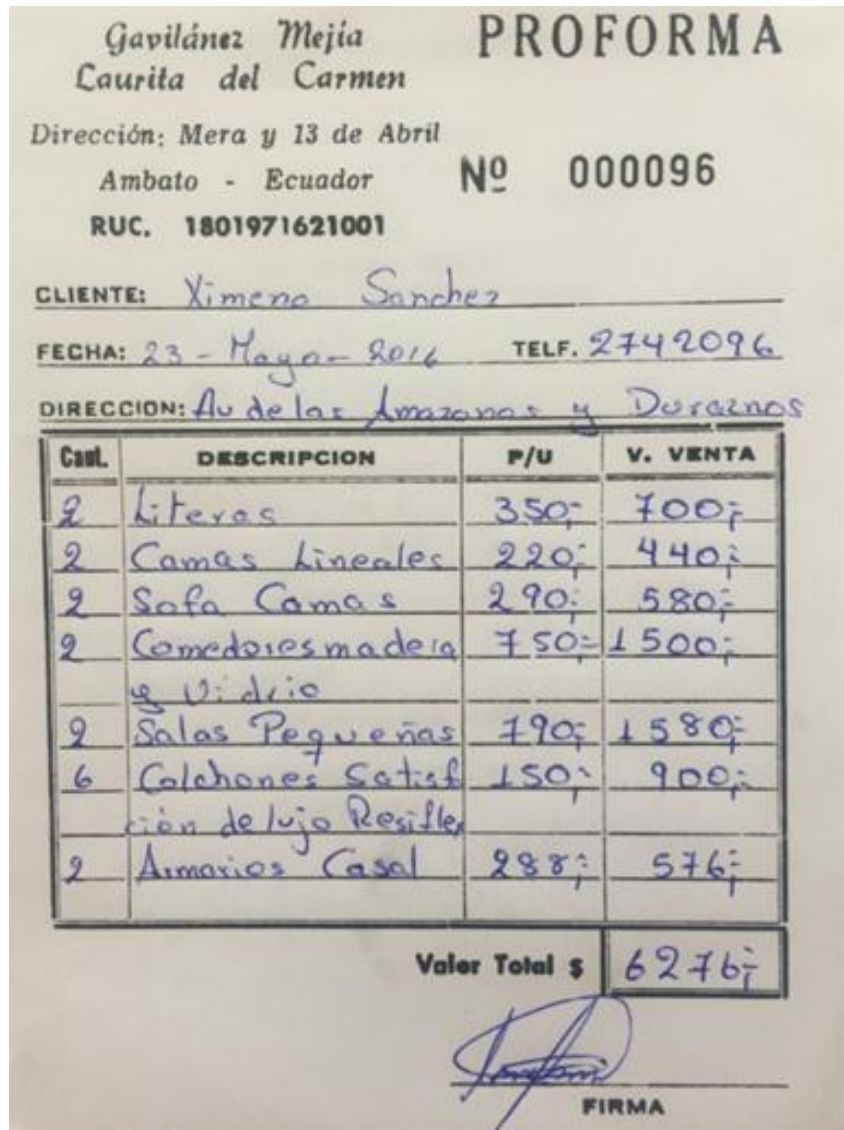 Gavilánez Mejía PROFORMA
Laurita del Carmen
Dirección: Mera y 13 de Abril
Ambato - Ecuador Nº 000096
RUC. 1801971621001
CLIENTE: Ximena Sanchez
FECHA: 23 - Mayo - 2016 TELF. 2742096
DIRECCION: Av de las Amazonas y Duraznos
Cant. DESCRIPCION P/U V. VENTA
2 Literas 350,- 700,-
2 Camas Lineales 220,- 440,-
2 Sofa Camas 290,- 580,-
2 Comedores madera 750,- 1500,-
y Vidrio
2 Salas Pequeñas 790,- 1580,-
6 Colchones Satisf 150,- 900,-
ción de lujo Resiflex
2 Armarios Casal 288,- 576,-
Valor Total $ 6276,-
FIRMA